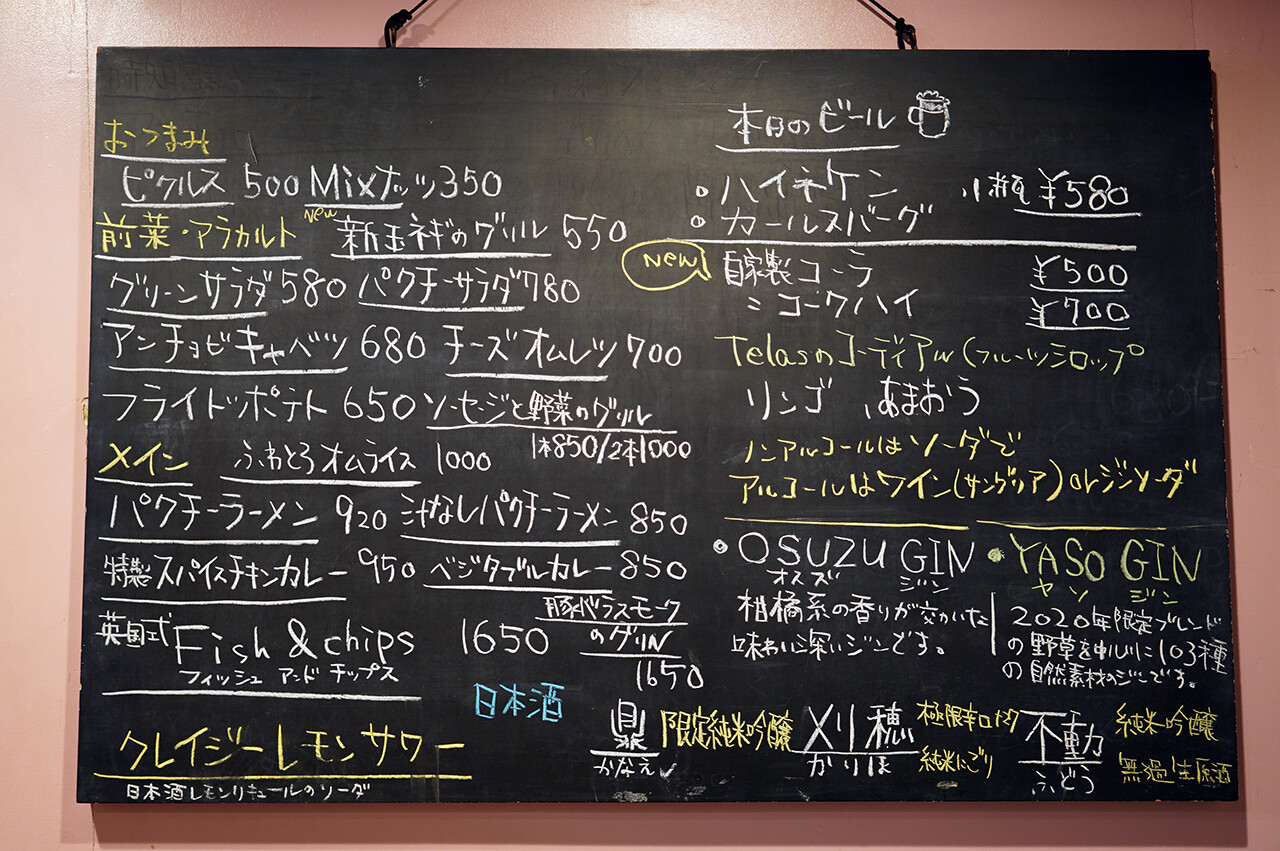 おつまみ
ピクルス 500 Mixナッツ 350
前菜・アラカルト new 新玉ネギのグリル 550
グリーンサラダ 580 パクチーサラダ 780
アンチョビキャベツ 680 チーズオムレツ 700
フライドポテト 650 ソーセージと野菜のグリル
1本850/2本1000
メイン ふわとろオムライス 1000
パクチーラーメン 920 汁なしパクチーラーメン 850
特製スパイスチキンカレー 950 ベジタブルカレー 850
英国式 Fish & chips 1650
フィッシュ アンド チップス
豚バラスモーク
のグリル
1650
クレイジーレモンサワー
日本酒レモンリキュールのソーダ
本日のビール
ハイネケン 小瓶 ¥580
カールスバーグ
New 自家製コーラ ¥500
〃 コークハイ ¥700
Telasのコーディアル(フルーツシロップ
リンゴ あまおう
ノンアルコールはソーダで
アルコールはワイン(サングリア)orジンソーダ
OSUZU GIN
オスズ ジン
柑橘系の香りが交かいた
味わい深いジンです。
YASO GIN
ヤソ ジン
2020年限定ブレンド
の野草を中心に103種
の自然素材のジンです。
日本酒
鼎 限定純米吟醸
かなえ
刈穂 極限辛口
かりほ 純米にごり
不動 純米吟醸
ふどう 無過生原酒